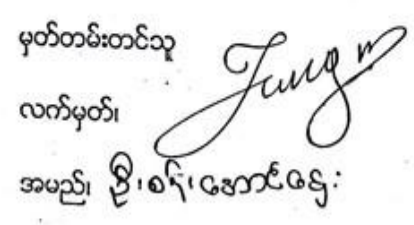 မှတ်တမ်းတင်သူ
လက်မှတ်၊
အမည်၊ ဦး၊စန်၊အောင်ဌေး